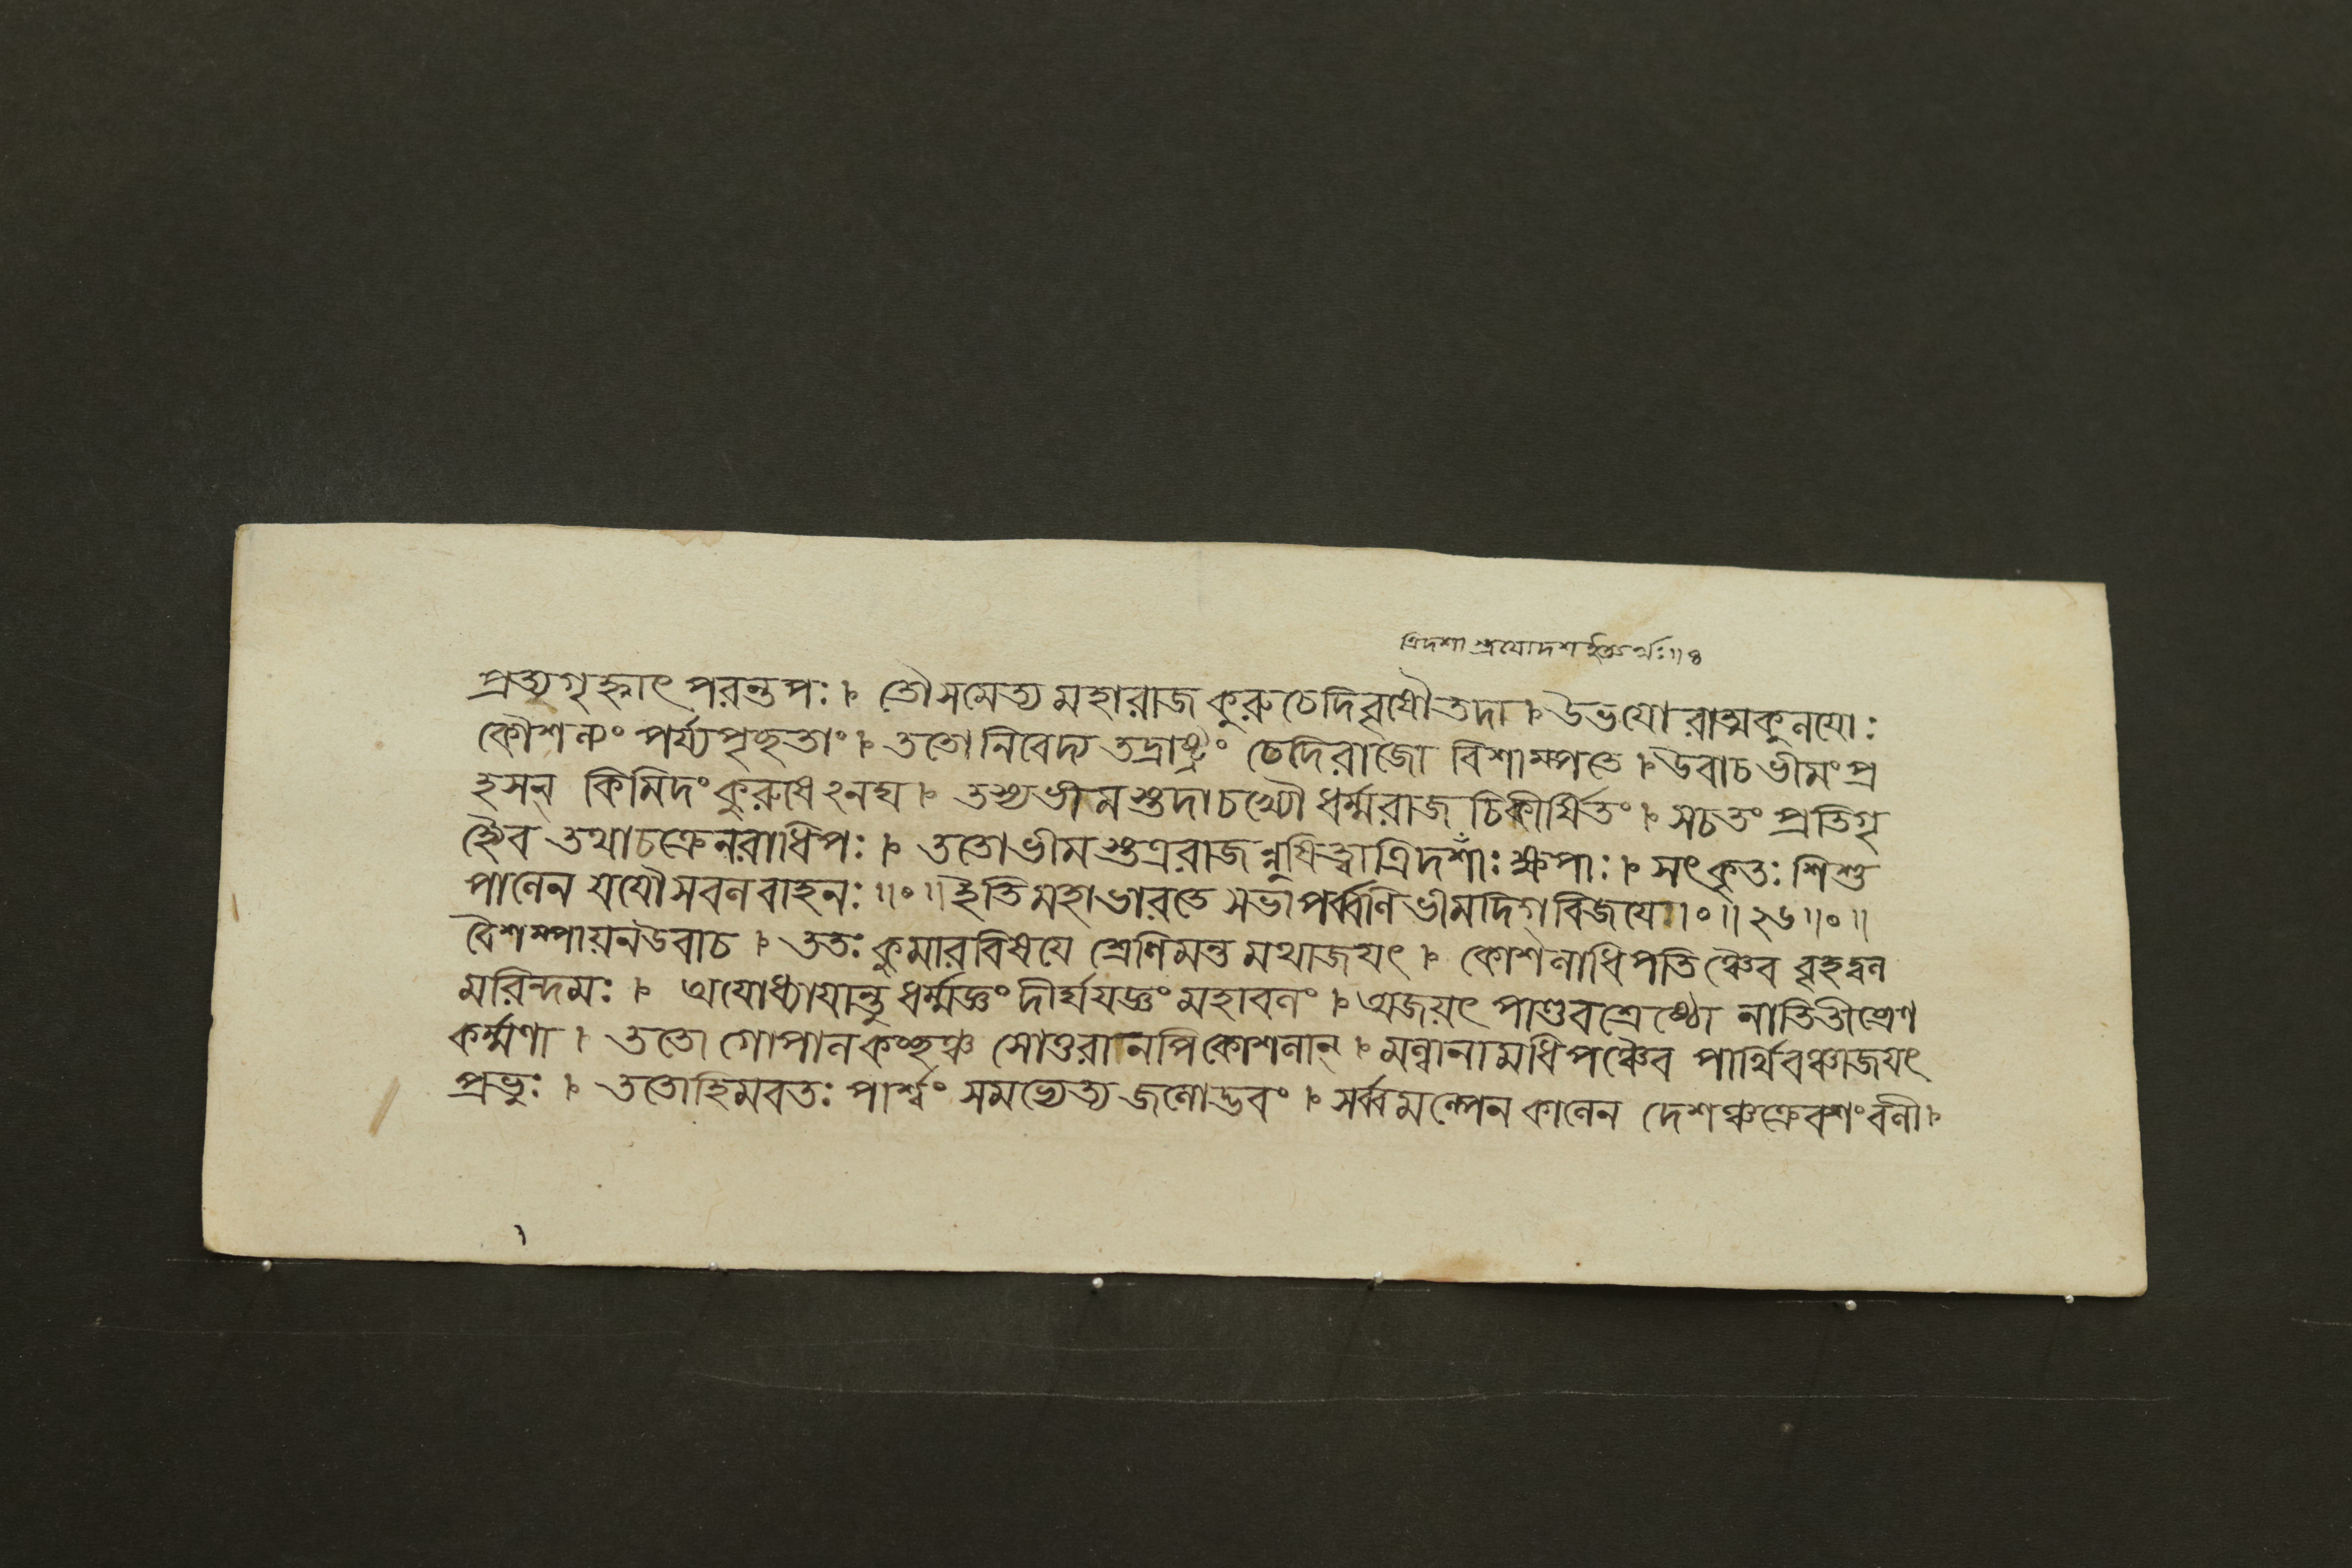 ত্রিদশা স্ত্রয়োদশ ইত্যর্থঃ॥৪
প্রত্যগৃহ্নাৎ পরন্তপঃ। তৌসমেত্য মহারাজ কুরুচেদিবৃষৌতদা। উভযো রাত্মকুলযোঃ
কৌশল্যং পর্য্যপৃচ্ছতাং। ততোনিবেদ্য তদ্রাষ্ট্রং চেদিরাজো বিশাম্পতে। উবাচ ভীমংপ্র
হসন্ কিমিদংকুরুষেঽনঘ। তস্যভীমস্তদাচখ্যৌ ধর্ম্মরাজ চিকীর্ষিতং। সচতং প্রতিগৃ
হ্যৈব তথাচক্রেনরাধিপঃ। ততোভীমস্তত্ররাজন্নুষিত্বাত্রিদশাঁঃ ক্ষপাঃ। সৎকৃতঃ শিশু
পালেন যযৌসবলবাহনঃ॥॰॥ইতিমহাভারতে সভাপর্ব্বণি ভীমদিগ্বিজযে॥॰॥২৬॥॰॥
বৈশম্পায়নউবাচ। ততঃ কুমারবিষযে শ্রেণিমন্ত মথাজযৎ। কোশলাধিপতিঞ্চৈব বৃহদ্বল
মরিন্দমঃ। অযোধ্যাযান্তু ধর্ম্মজ্ঞং দীর্ঘযজ্ঞং মহাবলং। অজয়ৎ পাণ্ডবশ্রেষ্ঠো নাতিতীব্রেণ
কর্ম্মণা। ততো গোপালকচ্ছঞ্চ সোত্তরানপিকোশলান্। মল্লানামধিপঞ্চৈব পার্থিবঞ্চাজযৎ
প্রভুঃ। ততোহিমবতঃ পার্শ্বং সমভ্যেত্য জলোদ্ভবং। সর্ব্বমল্পেন কালেন দেশঞ্চক্রেবশংবলী।